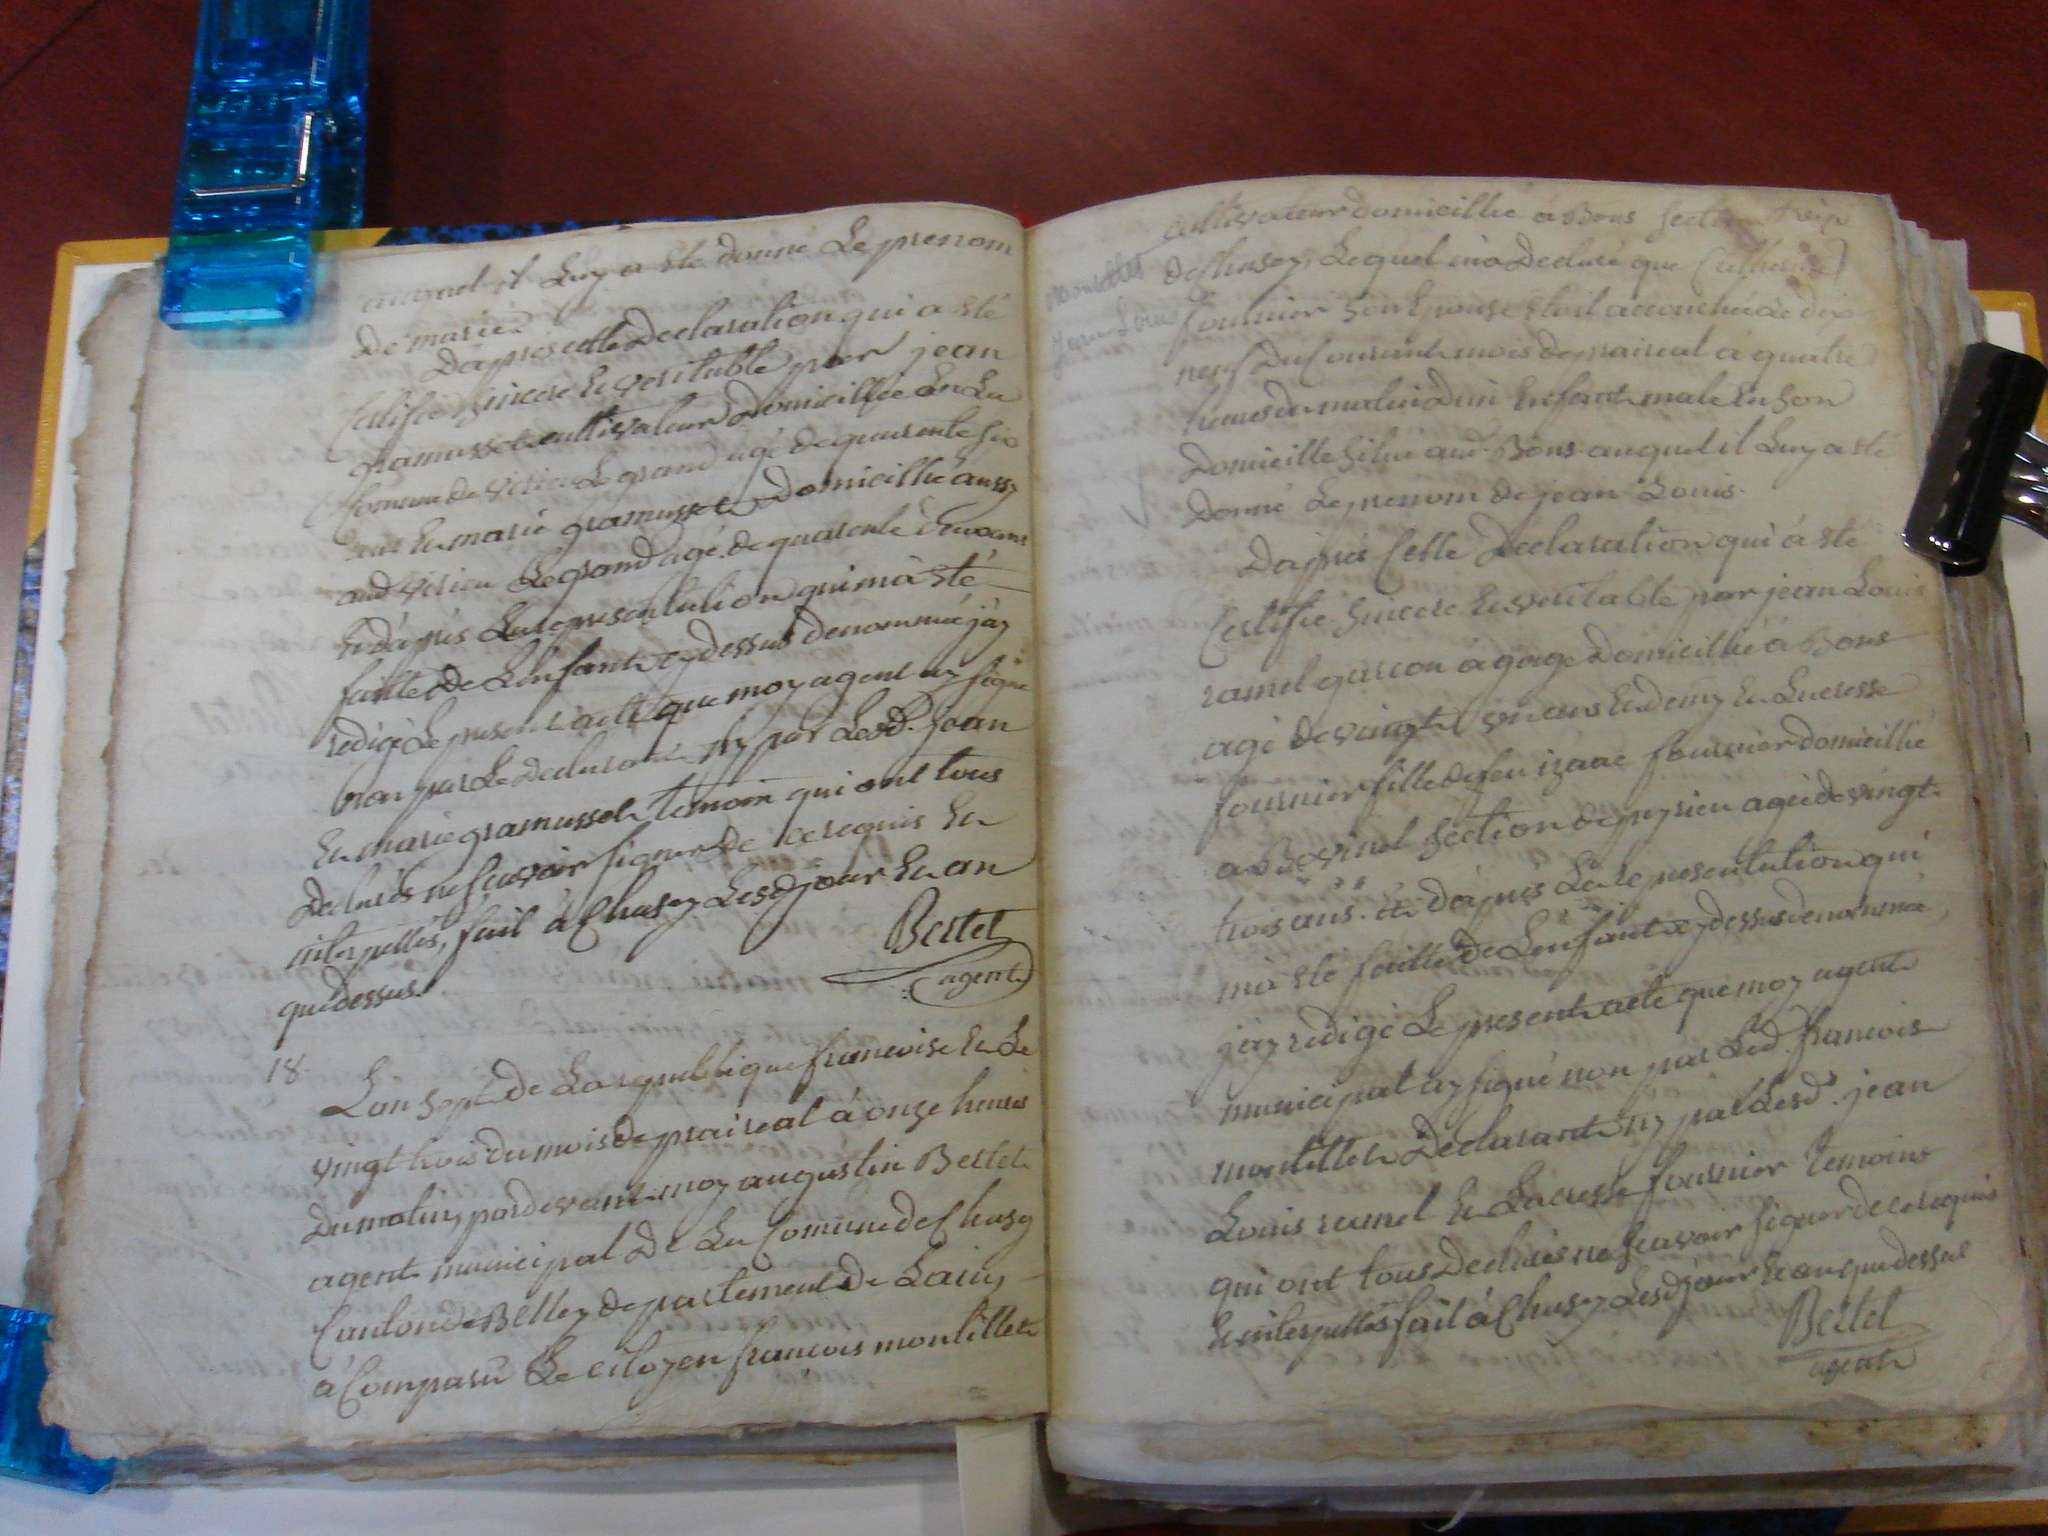 auquel il Luy a ete donné Le prenom
De marie.
D'apres cette Declaration qui a eté
Certifiée sincere Et veritable par jean
gramusset cultivateur domicillié En La
Comune de Virieu Le grand agé de quarente six
ans Et marie gramusset Domicillié aussy
aud Virieu Legrand agé de quarente deux ans
Et d'apres La representation qui m'a eté
faitte de L'enfant cy dessus denommé j'ay
redigé Le present acte que moy agent ay signé
non par Le Declarant ny par Lesd. jean
Et marie gramusset temoin qui ont tous
Declarés ne scavoir signer de ce requis Et
interpellés, fait à Chusey Lesd jour Et an
que dessus.
Bertet
agent
18. L'an sept de La republique francoise Et Le
vingt trois du mois de praireal à onze heures
Du matin, pardevant moy augustin Bertet
agent municipal De La Comune de Chusey
Canton de Belley departement de Lain,
à Comparu Le citoyen francois montillet
cultivateur domicillié à Bons section
de Chusey, Lequel m'a Declaré que Catherine
montillet
jean Louis
fournier son Epouse etoit accouchée Le dix
neuf Du Courant mois de praireal à quatre
heures du matin D'un Enfant male En son
Domicille situé aud. Bons auquel il Luy a eté
Donné Le prenom de jean Louis.
D'apres Cette Declaration qui à eté
Certifié sincere Et veritable par jean Louis
ramel garcon à gage Domicillié à Bons
agé de vingt ans Et demy Et Lucresse
fournier fille de feu izaac fournier domicillié
a Bovinel section de pezieu agée de vingt
trois ans. Et D'apres La representation qui
m'à eté faitte De L'enfant cy dessus denommé,
j'ay redigé Le present acte que moy agent
municipal ay signé non par Led. francois
montillet Declarant ny par Lesd. jean
Louis ramel Et Lucresse fournier temoins
qui ont tous Declarés ne scavoir signer de ce requis
Et interpellés fait à Chusey Lesd jour Et an que dessus
Bertet
agent